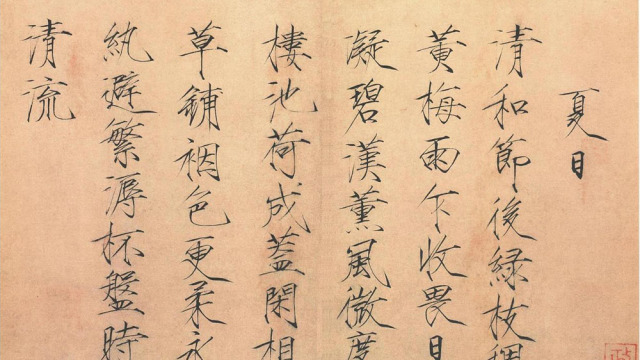 夏日
清和節後綠枝稠
黃梅雨乍收畏日
凝碧漢薰風微度
樓池荷成蓋閑相
草鋪裀色更柔永
紈避繁溽杯盤時
清流